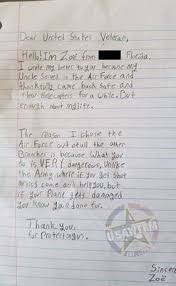 Dear United States Veteran,
Hello! I'm Zoë from Florida,
I wrote my letter to you because my
Uncle Served in the Air Force and
thankfully came back safe and
flew Helecopters for a while. But
enough about my life.
The reason I chose the
Air Force out of all the other
Branches is because What you
do is VERY dangerous, Unlike
the Army where if you get Shot
mates come and help you, but
if your Plane gets damaged
you know your done for.
Thank you,
for Protecting us.
Sincere
Zoë
USAVTM